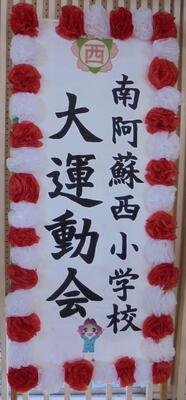 西
南阿蘇西小学校
大運動会